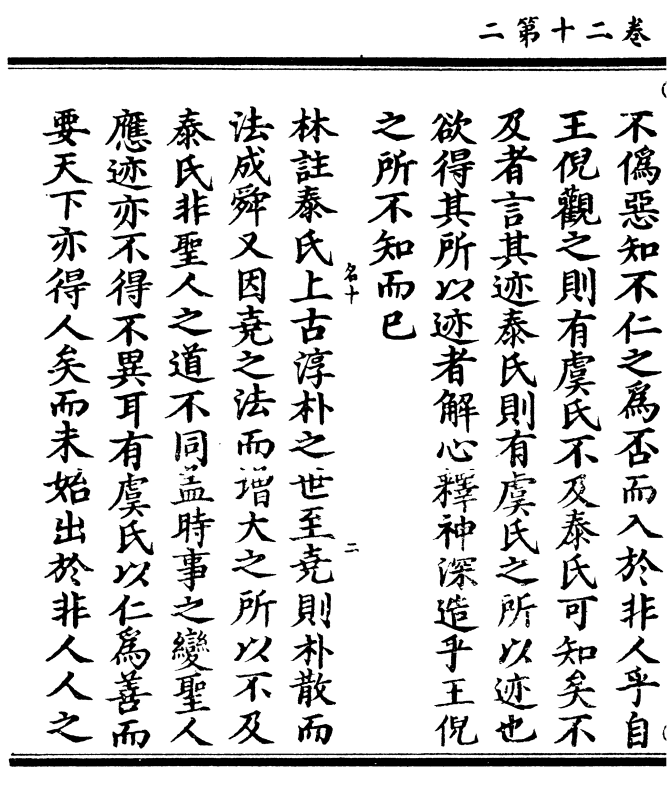 卷二十第二
不僞惡知不仁之爲否而入於非人乎自
王倪觀之則有虞氏不及泰氏可知矣不
及者言其迹泰氏則有虞氏之所以迹也
欲得其所以迹者解心釋神深造乎王倪
之所不知而已
名十
二
林註泰氏上古淳朴之世至堯則朴散而
法成舜又因堯之法而增大之所以不及
泰氏非聖人之道不同盖時事之變聖人
應迹亦不得不異耳有虞氏以仁爲善而
要天下亦得人矣而未始出於非人人之